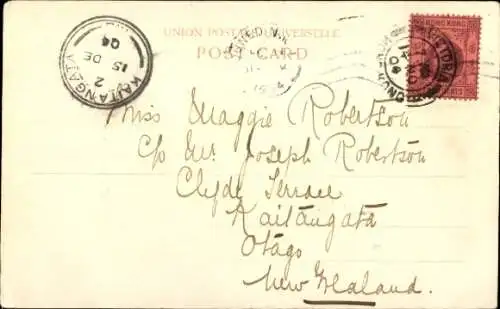 UNION POSTALE UNIVERSELLE
POST CARD
KAITANGATA
2
15 DE
04
HONG KONG
VICTORIA
Miss Maggie Robertson
C/o Mr. Joseph Robertson
Clyde Terrace
Kaitangata
Otago
New Zealand.